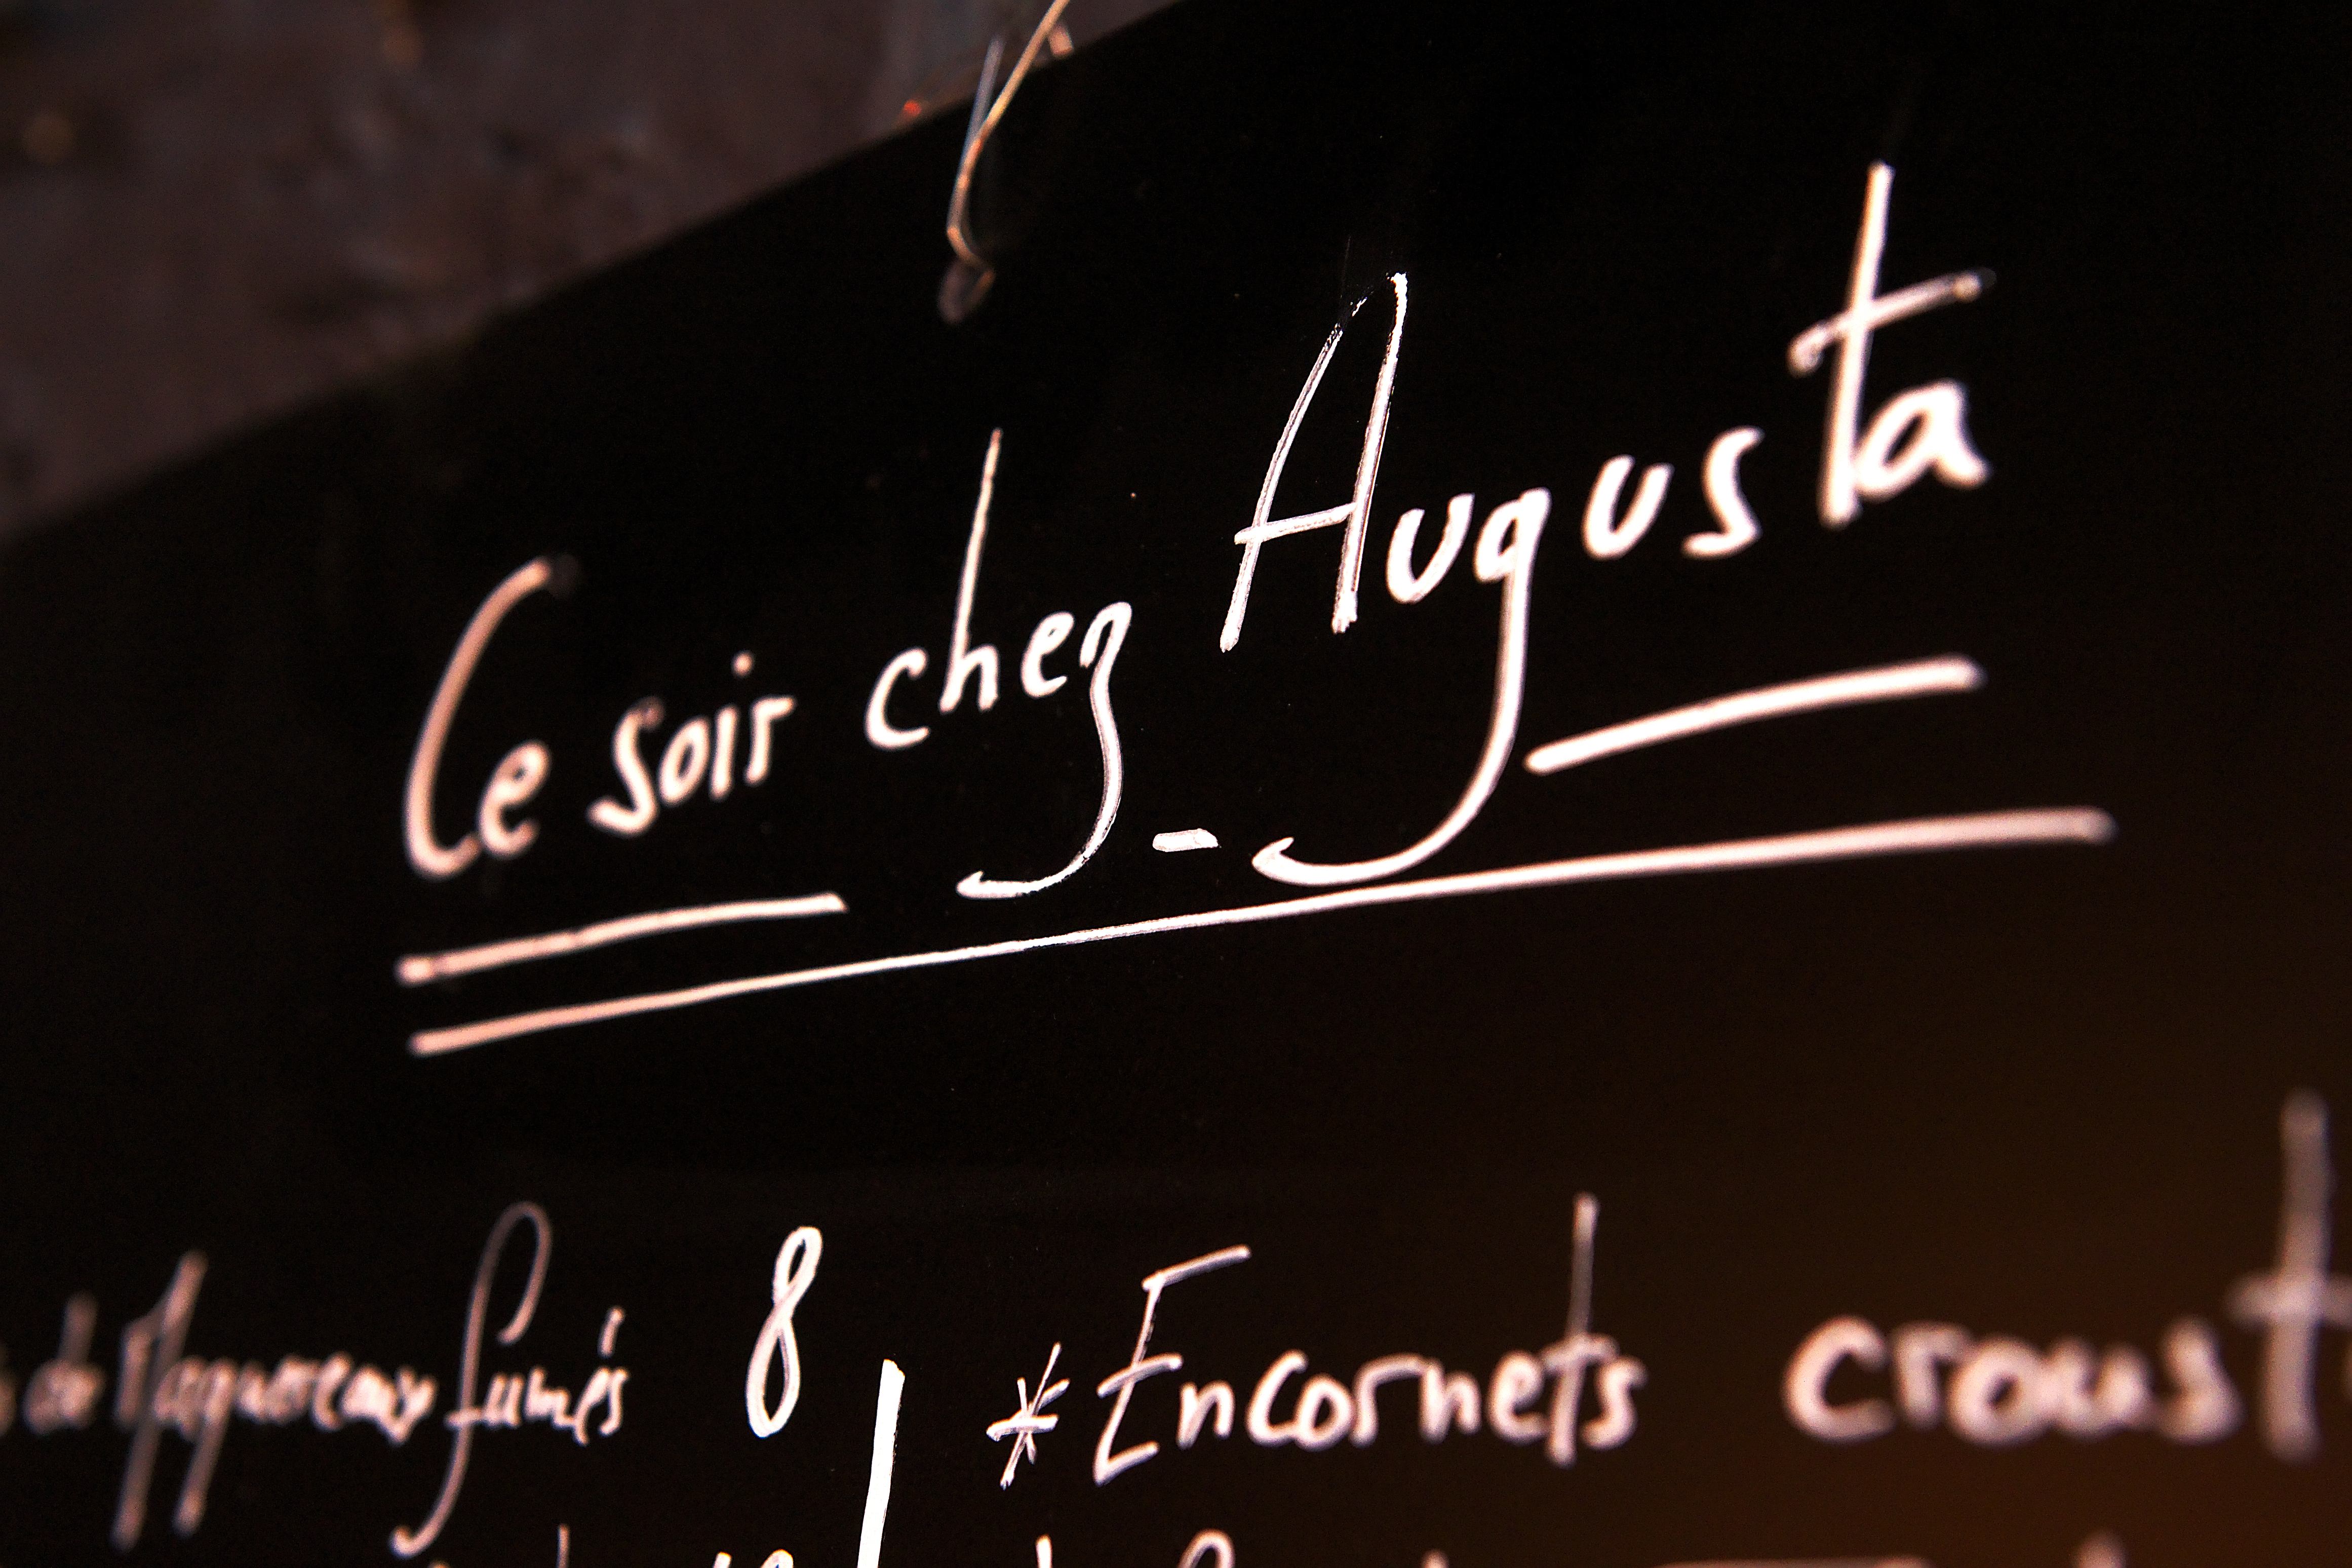 Ce soir chez Augusta
de Maquereaux fumés 8
* Encornets croust